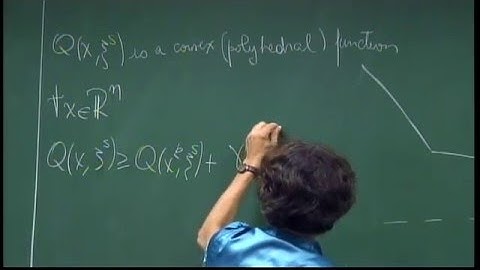 Q(x, ξˢ) is a convex (polyhedral) function
∀x∈ℝⁿ
Q(x, ξˢ) ≥ Q(xᵏ, ξˢ) +